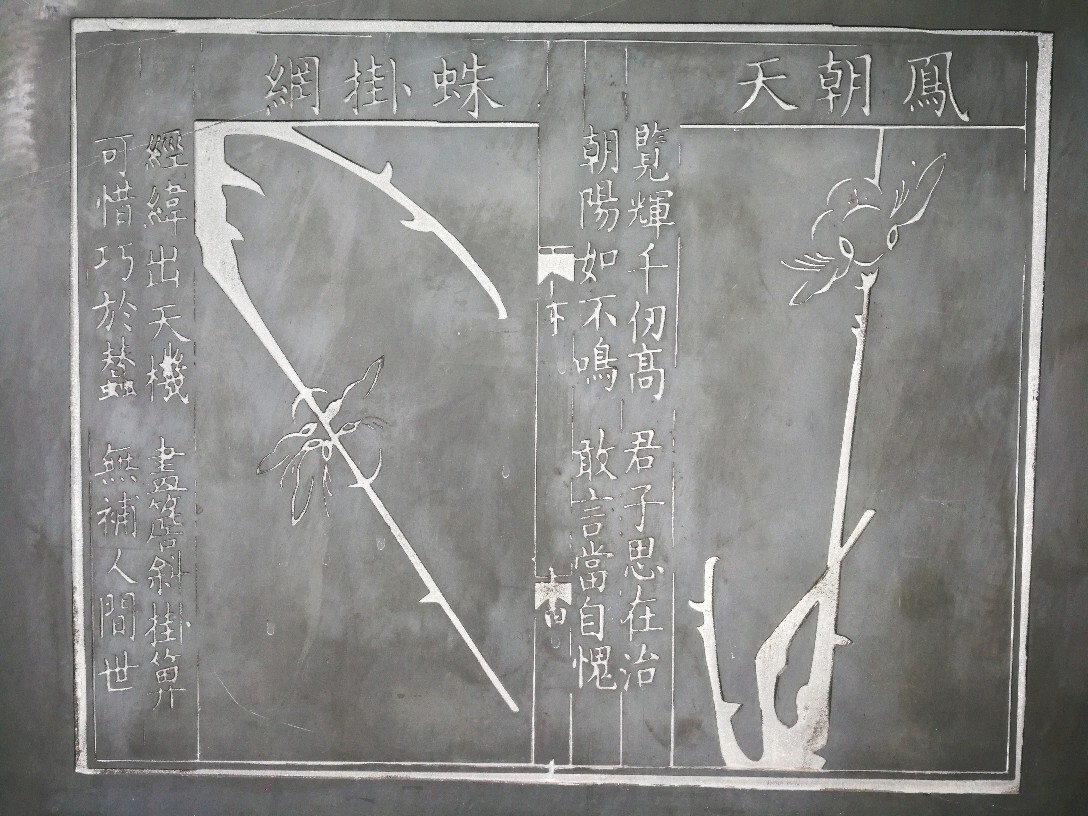 鳳朝天
覧輝千仞髙 君子思在治
朝陽如不鳴 敢言當自愧
蛛掛網
經緯出天機 畫簷斜掛箅
可惜巧於蠶 無補人間世